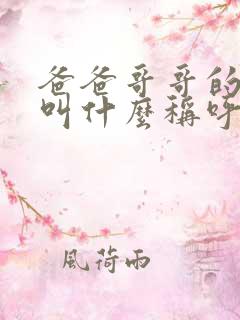 爸爸哥哥的
叫什麼稱呼
風荷雨